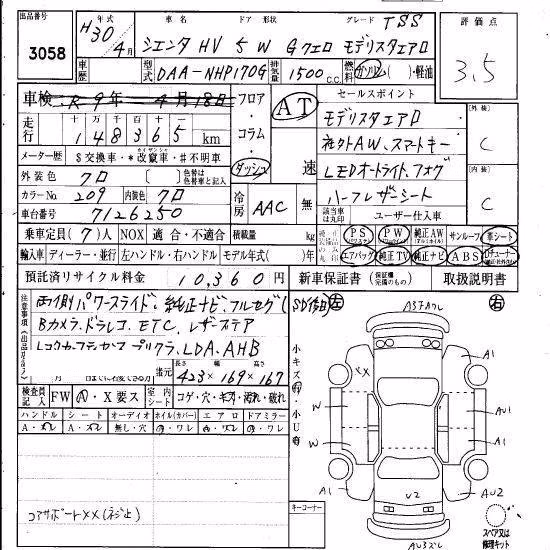 出品番号 3058
年式 H30 4月
車名 ドア 形状 グレード TSS
シエンタ HV 5 W Gクエロ モデリスタエアロ
評価点 3.5
車歴 型式 DAA-NHP170G 排気量 1500 c.c. 燃料 ガソリン ( )・軽油
車検 R 9年 4月 18日
フロア・コラム・ダッシュ
AT 速
セールスポイント
モデリスタエアロ
社外AW、スマートキー
LEDオートライト、フォグ
ハーフレザーシート
外装 C
内装 C
走行 十 万 千 百 十
1 4 8 3 6 5 km
メーター歴 $交換車・*改竄車・#不明車
外装色 クロ ( ) 色替は色替車と記入
カラーNo. 209 内装色 クロ
車台番号 7126250
冷房 AAC 無
該当車は丸印 ユーザー仕入車
乗車定員 (7)人 NOX 適合・不適合 積載量 kg
PS PW 純正AW サンルーフ 革シート
輸入車 ディーラー・並行 左ハンドル・右ハンドル モデル年式( )年
エアバッグ 純正TV 純正ナビ ABS
預託済リサイクル料金 10,360 円 新車保証書 取扱説明書
注意事項
両側パワースライド、純正ナビ、フルセグ(SD欠品)
Bカメラ、ドラレコ、ETC、レザーステア
プリクラ、LDA、AHB
諸元 長さ 幅 高さ
423×169×167
検査員記入 FW A・X要ス 室内シート コゲ・穴・キズ・汚れ・破れ
ハンドル シート オーディオ ホイル(カバー) エアロ ドアミラー
A・スレ A・スレ 無し・穴 A・ワレ A・ワレ A・ワレ
コアサポートXX(ネジ止)
小キズ 小U
左 右
A3 A1 XX W AU1 W A1 A1 U2 AU2
キーコーナー
スペア又は修理キット